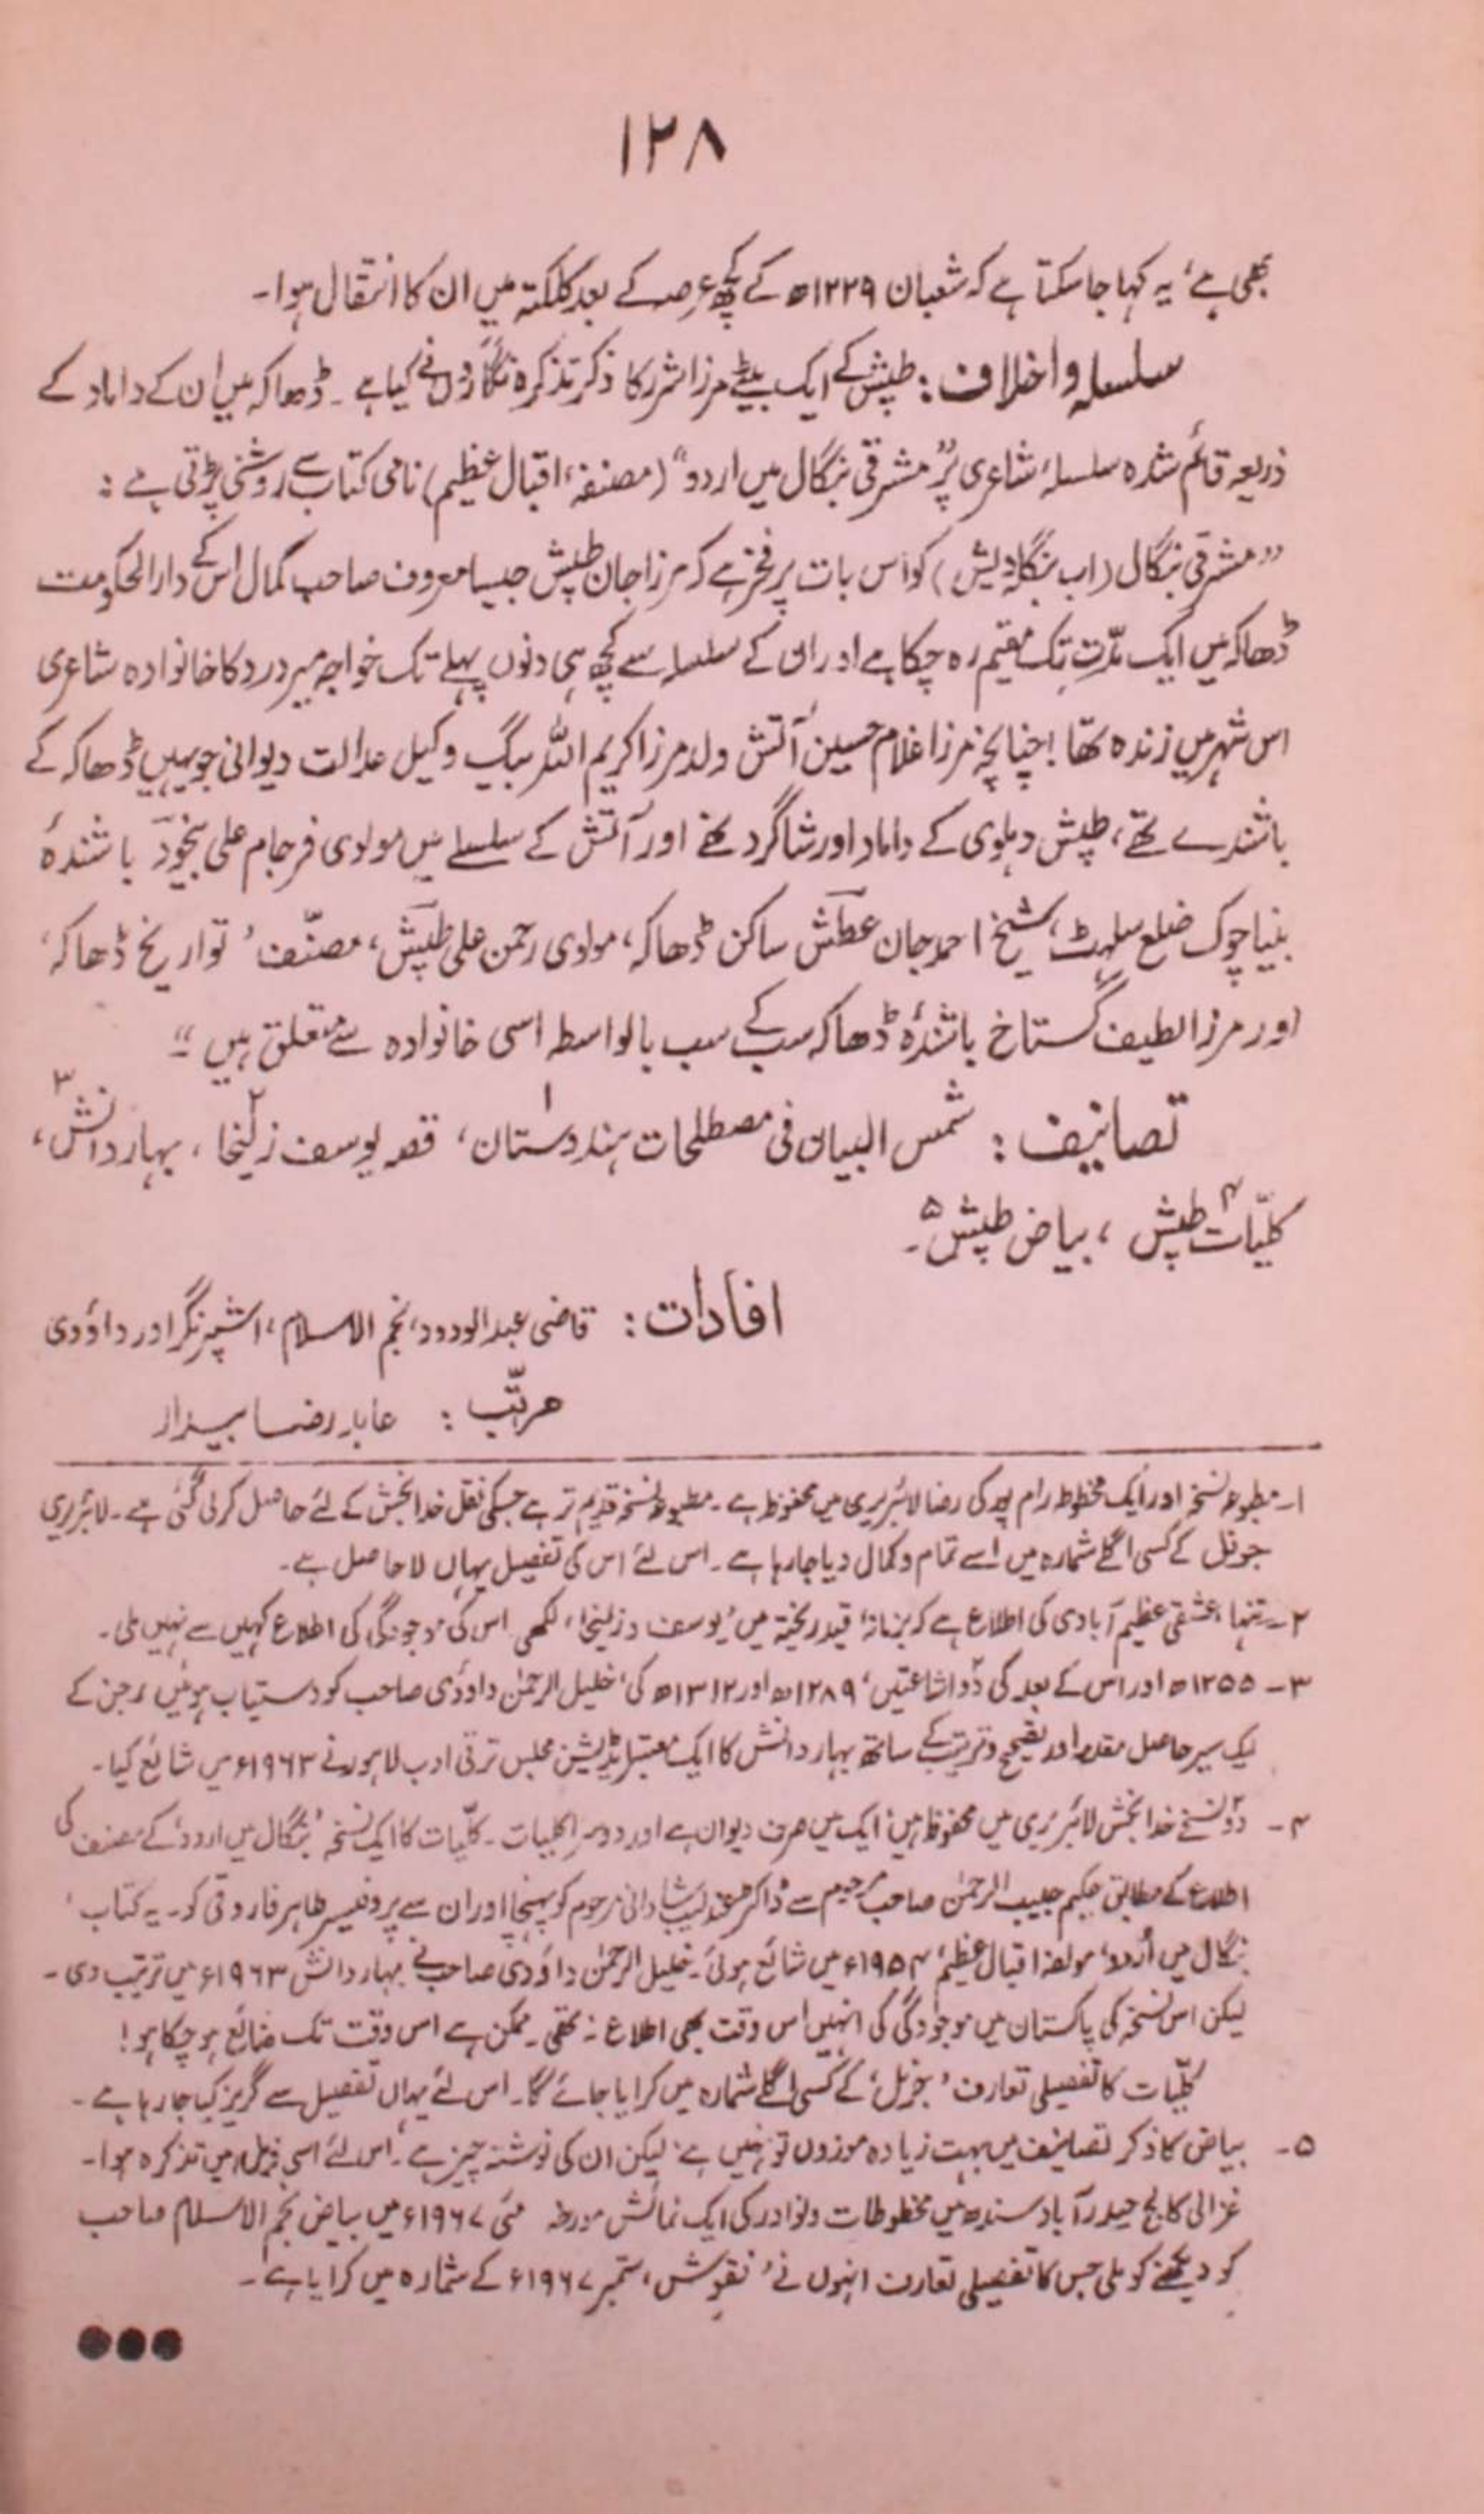 ۱۲۸
بھی ہے، یہ کہا جا سکتا ہے کہ شعبان ۱۲۲۹ھ کے کچھ عرصہ کے بعد کلکتہ میں ان کا انتقال ہوا۔
سلسلہ و اخلاف: طپش کے ایک بیٹے مرزا شرر کا ذکر تذکرہ نگاروں نے کیا ہے۔ ڈھاکہ میں ان کے داماد کے
ذریعہ قائم شدہ سلسلۂ شاعری پر "مشرقی بنگال میں اردو" (مصنفہ، اقبال عظیم) نامی کتاب سے روشنی پڑتی ہے:
"مشرقی بنگال (اب بنگلہ دیش) کو اس بات پر فخر ہے کہ مرزا جان طپش جیسا معروف صاحب کمال اس کے دارالحکومت
ڈھاکہ میں ایک مدّت تک مقیم رہ چکا ہے اور ان کے سلسلہ سے کچھ ہی دنوں پہلے تک خواجہ میر درد کا خانوادہ شاعری
اس شہر میں زندہ تھا! چنانچہ مرزا غلام حسین آتش ولد مرزا کریم اللہ بیگ وکیل عدالت دیوانی جو یہیں ڈھاکہ کے
باشندے تھے، طپش دہلوی کے داماد اور شاگرد تھے اور آتش کے سلسلے میں مولوی فرجام علی بیخود باشندۂ
بنیاچوک ضلع سلہٹ، شیخ احمد جان عطش ساکن ڈھاکہ، مولوی رحمن علی طپش، مصنّف 'تواریخ ڈھاکہ'
اور مرزا لطیف گستاخ باشندۂ ڈھاکہ سب کے سب بالواسطہ اسی خانوادہ سے متعلق ہیں"۔
تصانیف: شمس البیان فی مصطلحات ہندوستان۱، قصہ یوسف زلیخا۲، بہار دانش۳،
کلیّات طپش۴، بیاض طپش۵۔
افادات: قاضی عبدالودود، نجم الاسلام، اشپرنگر اور داؤدی
مرتّب: عابد رضا بیدار
۱۔ مطبوعہ نسخہ اور ایک مخطوطہ رام پور کی رضا لائبریری میں محفوظ ہے۔ مطبوعہ نسخہ قدیم تر ہے جسکی نقل خدا بخش کے لئے حاصل کر لی گئی ہے۔ لائبریری
جرنل کے کسی اگلے شمارہ میں اسے تمام و کمال دیا جا رہا ہے۔ اس لئے اس کی تفصیل یہاں لا حاصل ہے۔
۲۔ تنہا، عشقی عظیم آبادی کی اطلاع ہے کہ بزمانۂ قید ریختہ میں 'یوسف و زلیخا' لکھی اس کی موجودگی کی اطلاع کہیں سے نہیں ملی۔
۳۔ ۱۲۵۵ھ اور اس کے بعد کی دو اشاعتیں، ۱۲۸۹ھ اور ۱۳۱۲ھ کی، خلیل الرحمٰن داؤدی صاحب کو دستیاب ہوئیں، جن کے
ایک سیر حاصل مقدمہ اور تصحیح و ترتیب کے ساتھ بہار دانش کا ایک معتبر ایڈیشن مجلس ترقی ادب لاہور نے ۱۹۶۳ء میں شائع کیا۔
۴۔ دو نسخے خدا بخش لائبریری میں محفوظ ہیں: ایک میں صرف دیوان ہے اور دوسرا کلیات۔ کلّیات کا ایک نسخہ 'بنگال میں اردو' کے مصنف کی
اطلاع کے مطابق حکیم حبیب الرحمٰن صاحب مرحوم سے ڈاکٹر عندلیب شادانی مرحوم کو پہنچا اور ان سے پروفیسر طاہر فاروقی کو۔ یہ کتاب '
بنگال میں اُردو' مولفہ اقبال عظیم، ۱۹۵۴ء میں شائع ہوئی۔ خلیل الرحمٰن داؤدی صاحب نے بہار دانش ۱۹۶۳ء میں ترتیب دی۔
لیکن اس نسخہ کی پاکستان میں موجودگی کی انہیں اس وقت بھی اطلاع نہ تھی۔ ممکن ہے اس وقت تک ضائع ہو چکا ہو!
کلّیات کا تفصیلی تعارف 'جرنل' کے کسی اگلے شمارہ میں کرایا جائے گا۔ اس لئے یہاں تفصیل سے گریز کیا جا رہا ہے۔
۵۔ بیاض کا ذکر تصانیف میں بہت زیادہ موزوں تو نہیں ہے، لیکن ان کی نوشتہ چیز ہے، اس لئے اسی ذیل میں تذکرہ ہوا۔
غزالی کالج حیدر آباد سندھ میں مخطوطات و نوادر کی ایک نمائش مورخہ مئی ۱۹۶۷ء میں بیاض نجم الاسلام صاحب
کو دیکھنے کو ملی جس کا تفصیلی تعارف انہوں نے 'نقوش'، ستمبر ۱۹۶۷ء کے شمارہ میں کرایا ہے۔